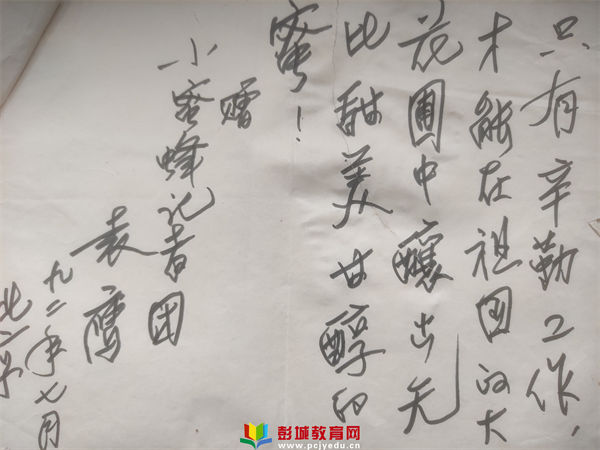 只有辛勤工作，
才能在祖国的大
花圃中酿出无
比甜美甘醇的
蜜！
赠
小蜜蜂记者团
袁鹰
九二年七月
北京
彭城教育网
www.pcjyedu.cn